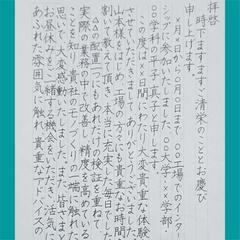 拝啓
時下ますますご清栄のこととお慶び
申し上げます。
×月×日から○月○日まで、○○工場でのインター
ンシップに参加いたしました、○○大学××学部・
○○学科の山下真子と申します。
この度は×日間にわたり大変貴重な体験を
させていただきまして、ありがとうございました。
山本様をはじめ、工場の方々にも貴重なお時間を
割いて教えて頂き、本当に充実した毎日でした。
△△の配置にもあれだけの検証を重ねて、
実際の業務の中で効率、精度を高めていること
を知り、貴社のモノづくりの一端に触れた
思いで大変感動いたしました。また、皆さまと
お昼休みをご一緒する機会をいただき、活気に
あふれた雰囲気に触れ、貴重なアドバイスの